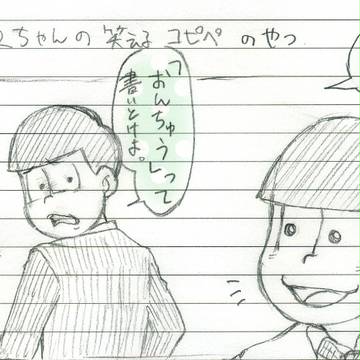 2ちゃんの 笑える コピペ のやつ
「おんちゅう」って
書いとけよ。